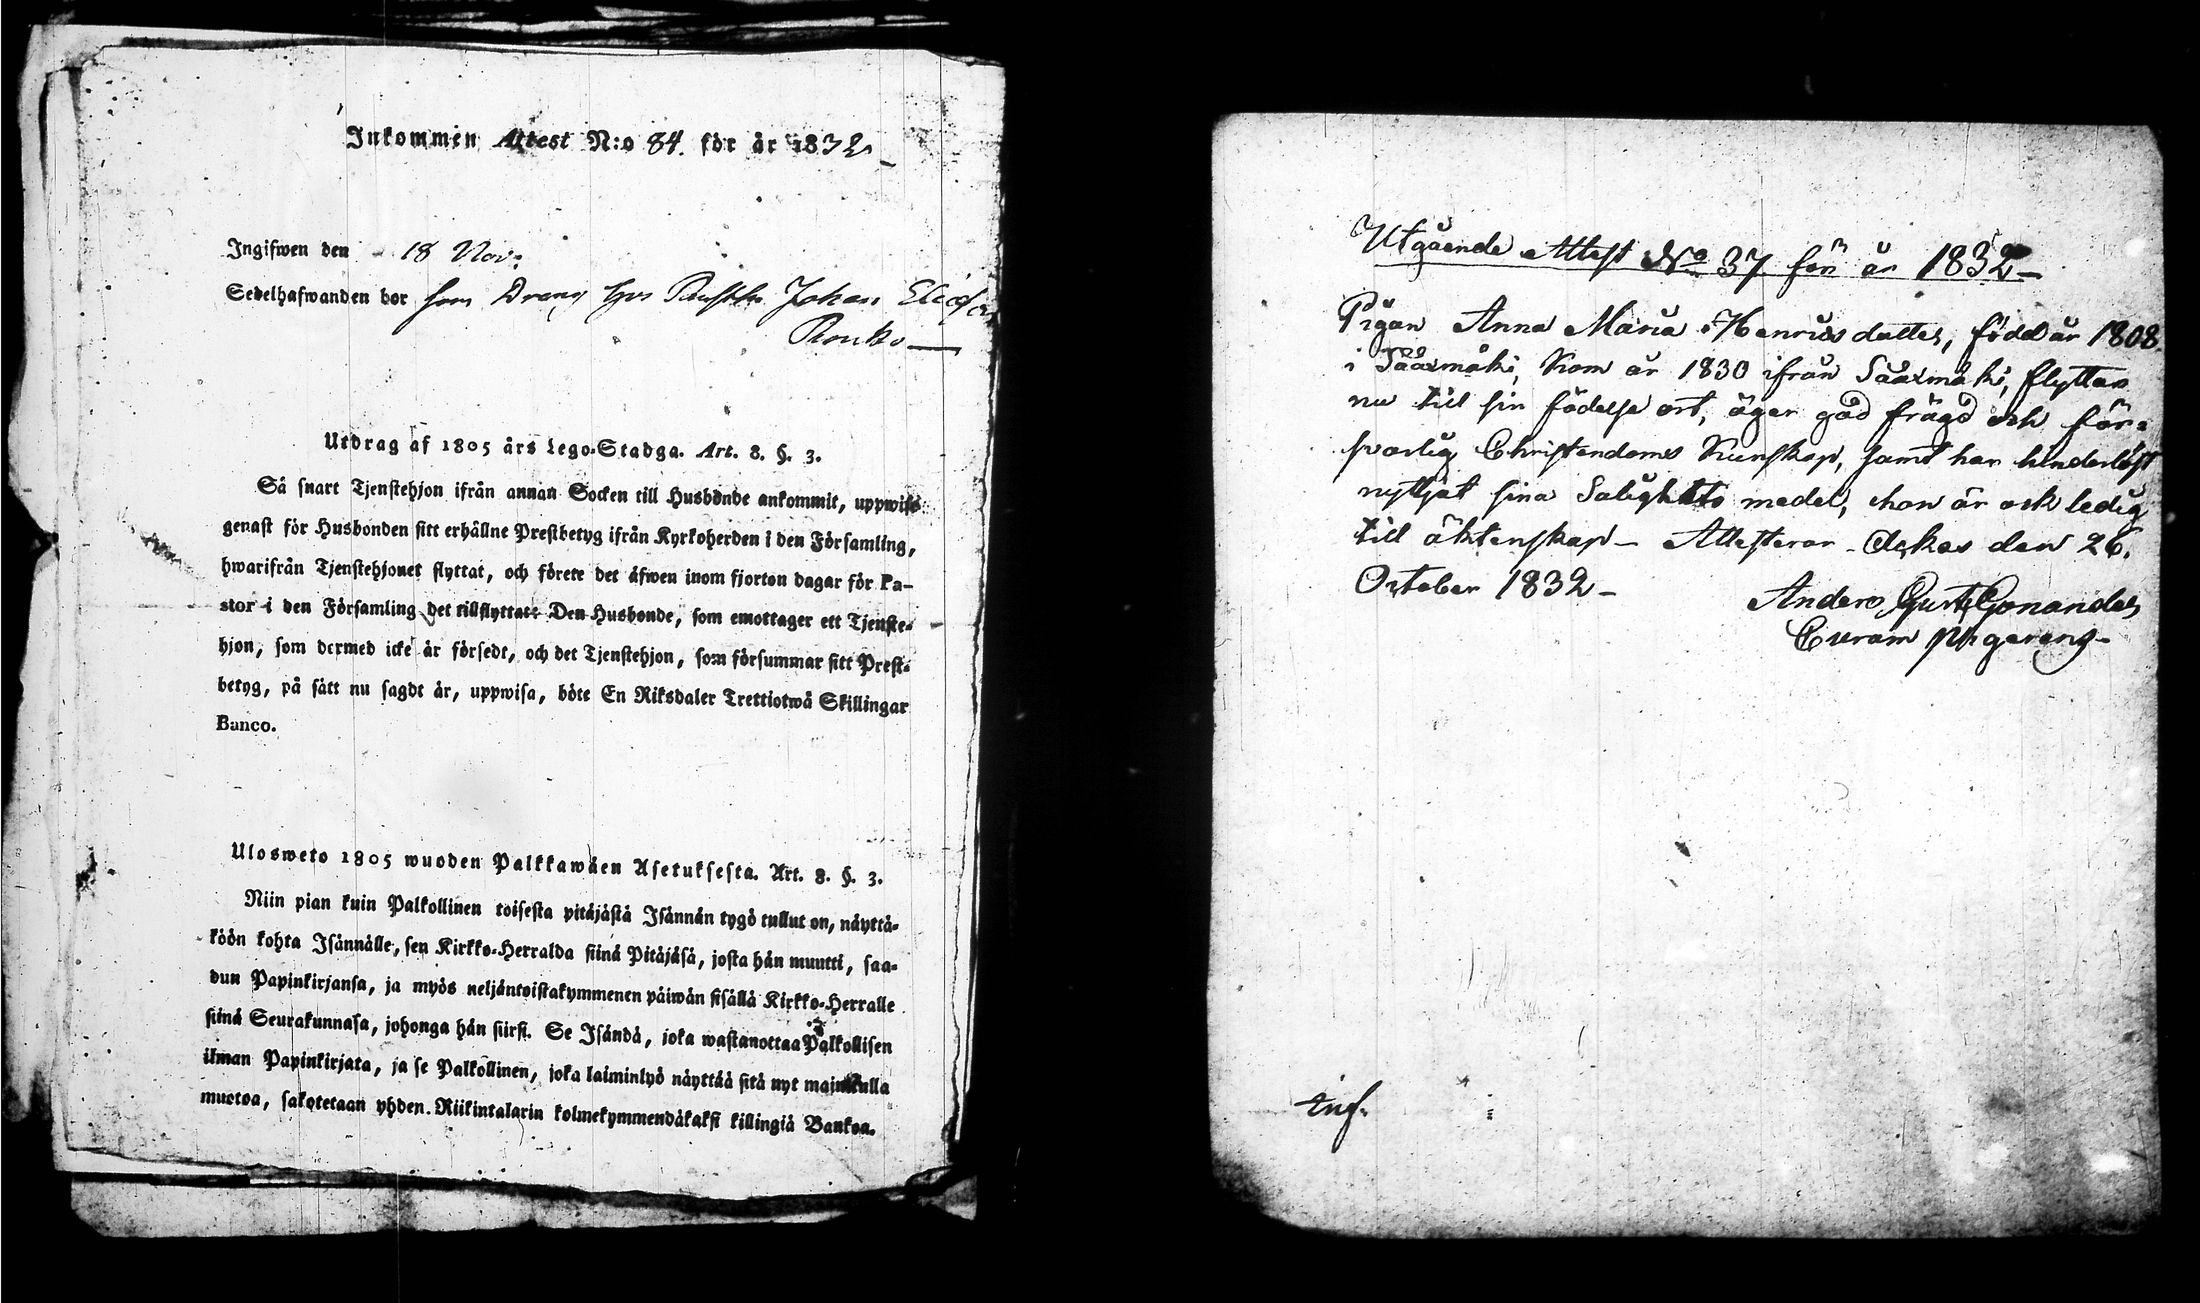 Inkommen Attest N:o 84. för år 1832
Ingifwen den 18 Nov:
Sedelhafwanden bor som Dräng hos Johan
Utdrag af 1805 års Lego-Stadga. Art. 8. §. 3.
Så snart Tjenstehjon ifrån annan Socken till Husbonde ankommit, uppwise
genast för Husbonden sitt erhållne Prestbetyg ifrån Kyrkoherden i den Församling,
hwarifrån Tjenstehjonet flyttat, och förete det äfwen inom fjorton dagar för Pa-
stor i den Församling det tillflyttat: Den Husbonde, som emottager ett Tjenste-
hjon, som dermed icke är försedt, och det Tjenstehjon, som försummar sitt Prest-
betyg, på sätt nu sagdt är, uppwisa, böte En Riksdaler Trettiotwå Skillingar
Banco.
Ulosweto 1805 wuoden Palkkawäen Asetuksesta. Art. 8. §. 3.
Niin pian kuin Palkollinen toisesta pitäjästä Isännän tygö tullut on, näyttä-
köön kohta Isännälle, sen Kirkko-Herralda siinä Pitäjäsä, josta hän muutti, saa-
dun Papinkirjansa, ja myös neljäntoistakymmenen päiwän sisällä Kirkko-Herralle
siinä Seurakunnasa, johonga hän siirsi. Se Isändä, joka wastanottaa Palkollisen
ilman Papinkirjata, ja se Palkollinen, joka laiminlyö näyttää sitä nyt mainitulla
muotoa, sakotetaan yhden Riikintalarin kolmekymmendäkaksi killingiä Bankoa.
Utgående Attest No 37 för år 1832
Pigan Anna Maria Henricsdotter, född år 1808
i Sääxmäki, kom år 1830 ifrån Sääxmäki, flyttar
nu till sin födelse ort, äger god frägd och för-
svarlig Christendoms Kunskap, samt har hinderlöst
nyttjat sina Salighets medel, hon är ock ledig
till äktenskap – Attesterar den 26.
October 1832 –
Anders